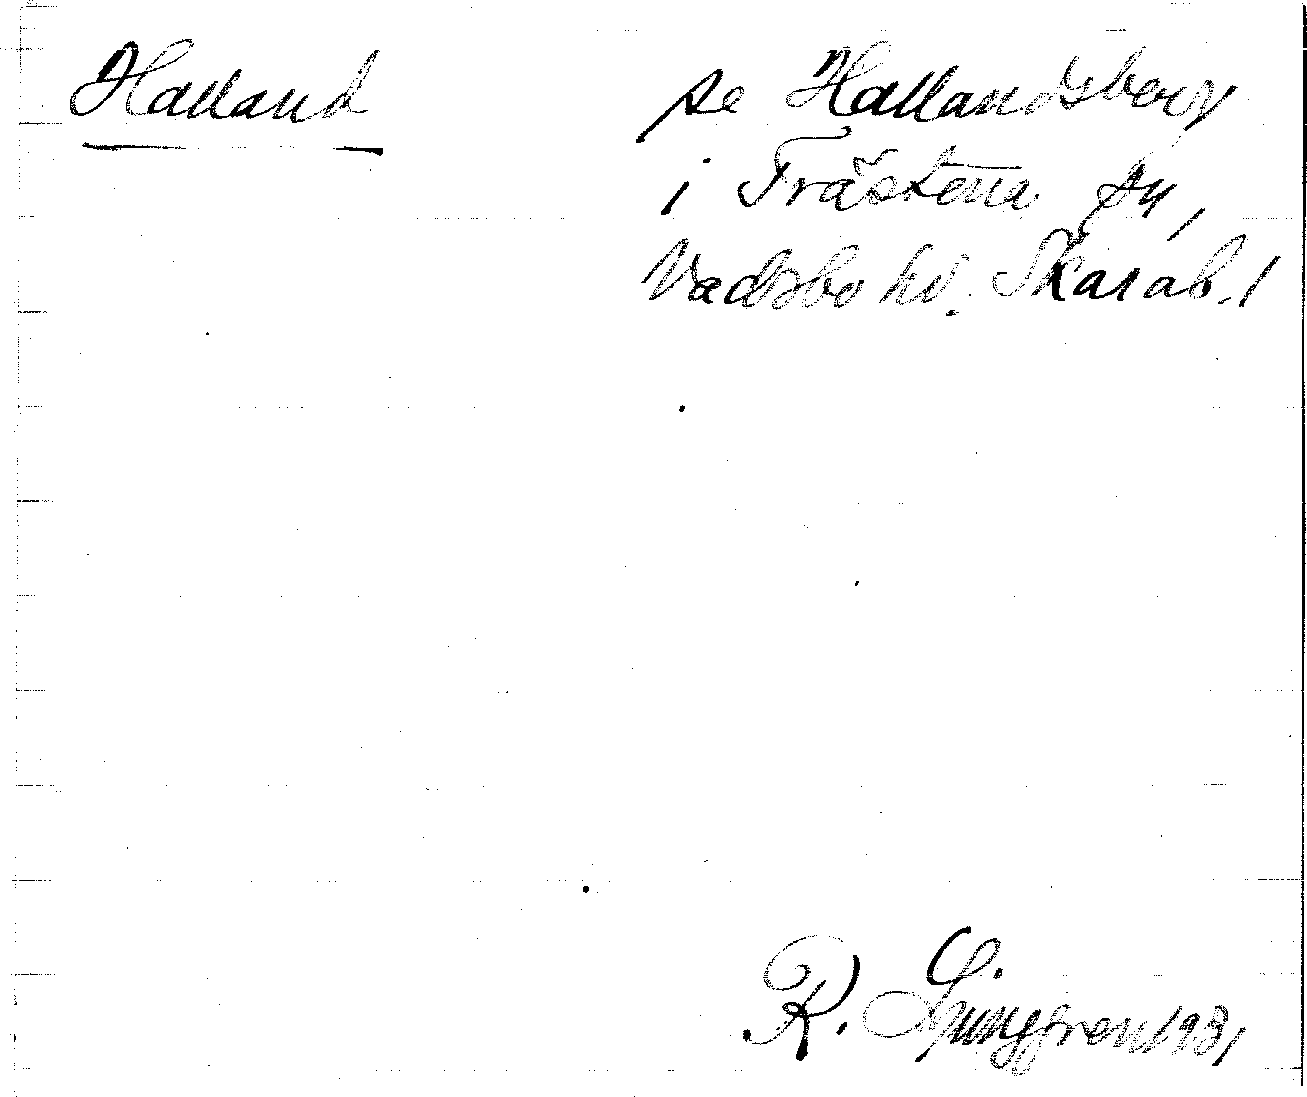 Halland
se Hallandsborg
i Trästena sn,
Vadsbo hd. Skarab. l
R. Ljunggren 1931